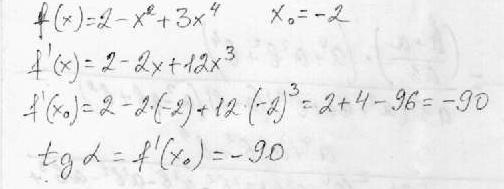 f(x)=2-x²+3x⁴ x₀=-2
f'(x)=2-2x+12x³
f'(x₀)=2-2·(-2)+12·(-2)³=2+4-96=-90
tg α=f'(x₀)=-90